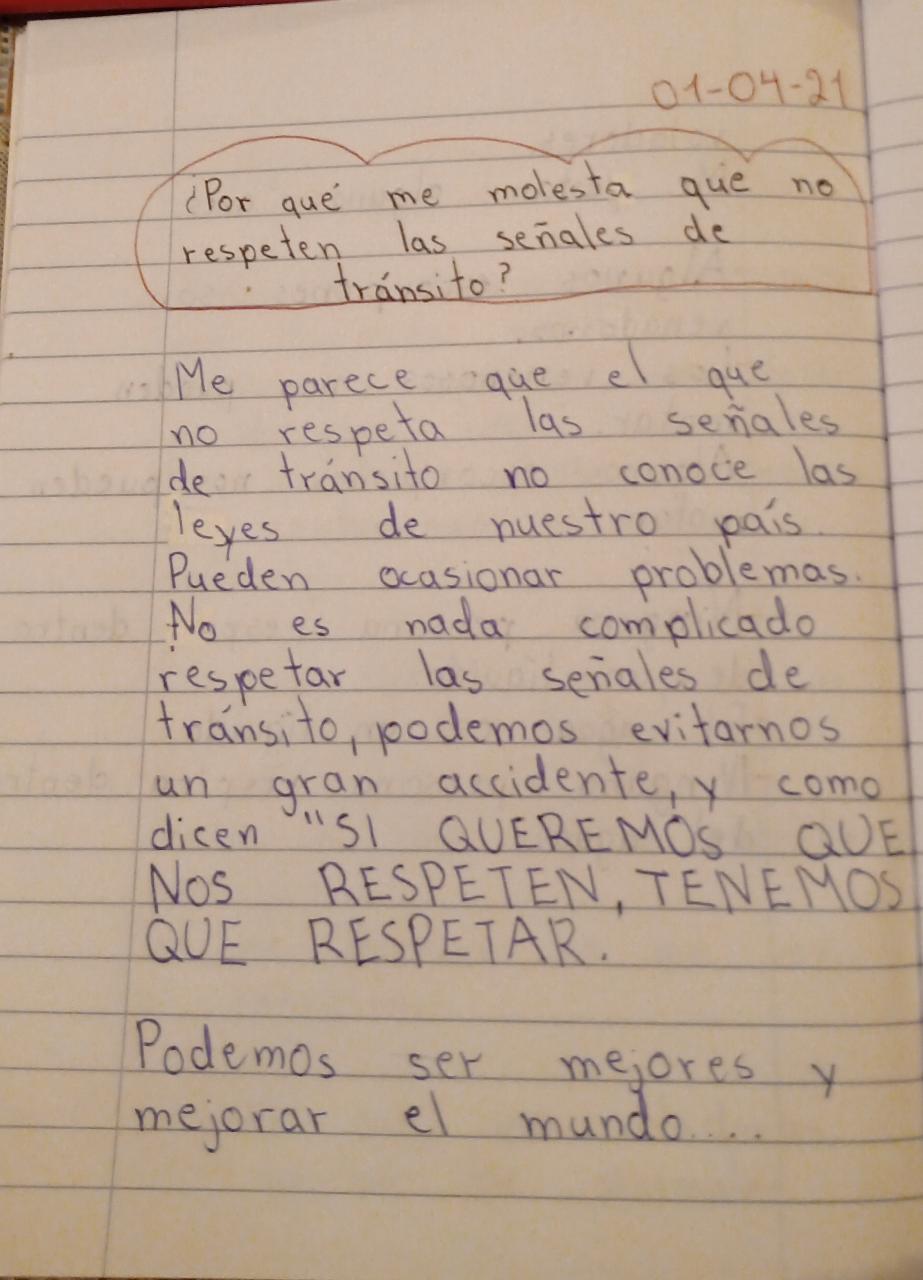 01-04-21
¿Por qué me molesta que no
respeten las señales de
tránsito?
Me parece que el que
no respeta las señales
de tránsito no conoce las
leyes de nuestro país.
Pueden ocasionar problemas.
No es nada complicado
respetar las señales de
tránsito, podemos evitarnos
un gran accidente, y como
dicen "SI QUEREMOS QUE
NOS RESPETEN, TENEMOS
QUE RESPETAR.
Podemos ser mejores y
mejorar el mundo....